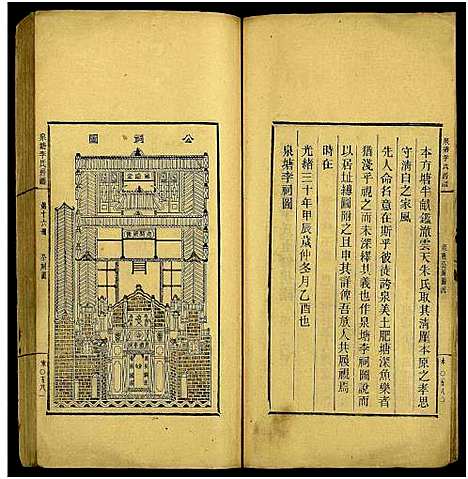 本方塘半畝鑑澈雲天朱氏取其清厪本原之孝思
守清白之家風
先人命名意在斯乎彼徒誇泉美土肥塘深魚樂者
猶淺乎視之而未深繹其義也作泉塘李祠圖說而
以居址縛圖附之且申其詳俾吾族人共展視焉
時在
光緒三十年甲辰歲仲冬月乙酉也
泉塘李祠圖
公祠圖
泉塘李氏
第十六